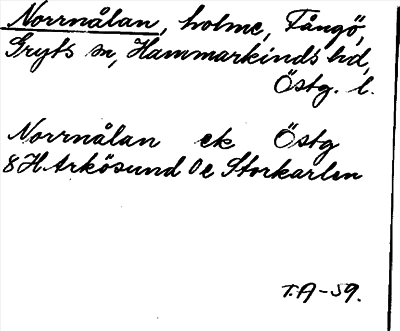 Norrnålan, holme, Fångö,
Gryts sn, Hammarkinds hd,
Östg. l.
Norrnålan ek Östg
8 H Arkösund 0 e Storkarlen
T.A-59.